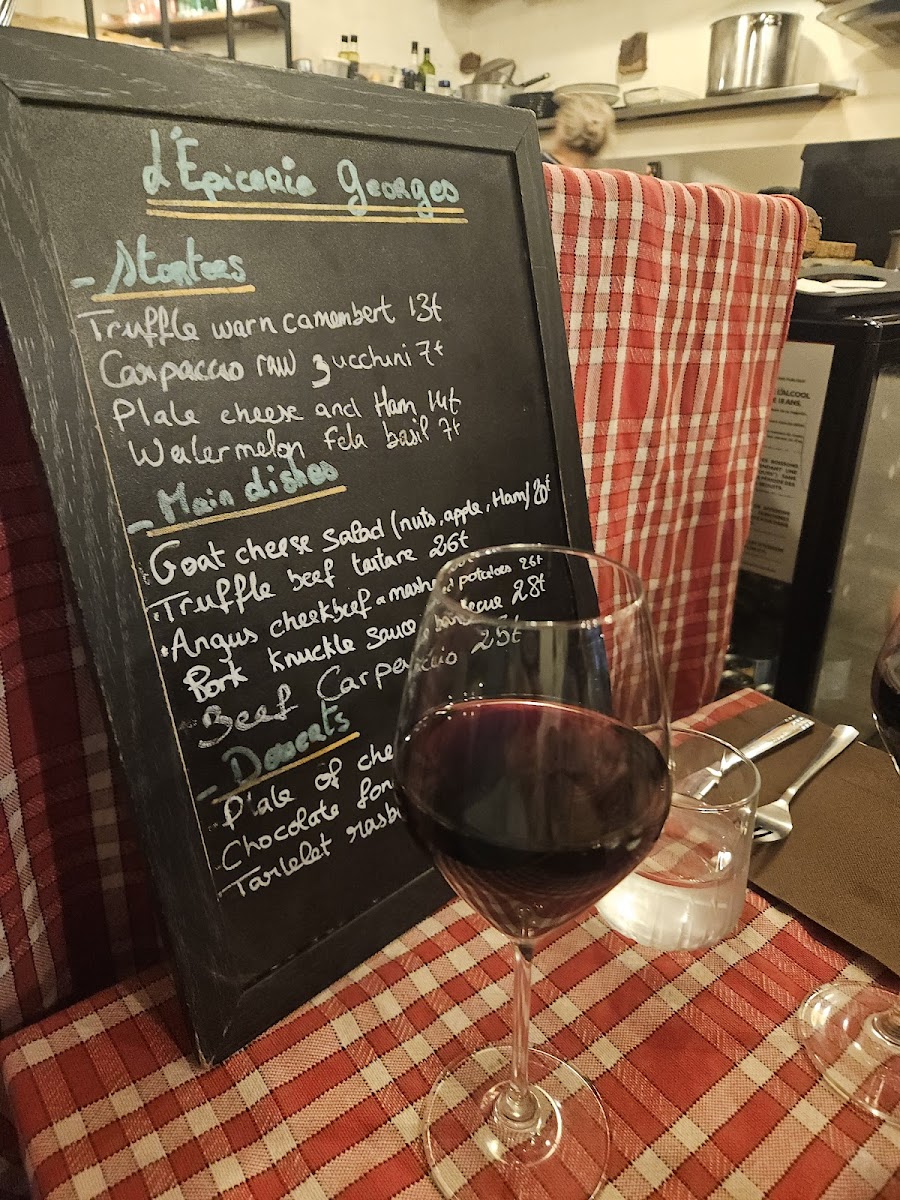 L'Epicerie Georges
- Starters
Truffle warn camembert 13€
Carpaccio raw zucchini 7€
Plate cheese and Ham 14€
Watermelon Feta basil 7€
- Main dishes
Goat cheese salad (nuts, apple, Ham) 20€
Truffle beef tartare 26€
Angus cheekbeef & mashed potatoes 26€
Pork Knuckle sauce barbecue 28€
Beef Carpaccio 25€
- Desserts
Plate of
Chocolate
Tartelet
L'ALCOOL